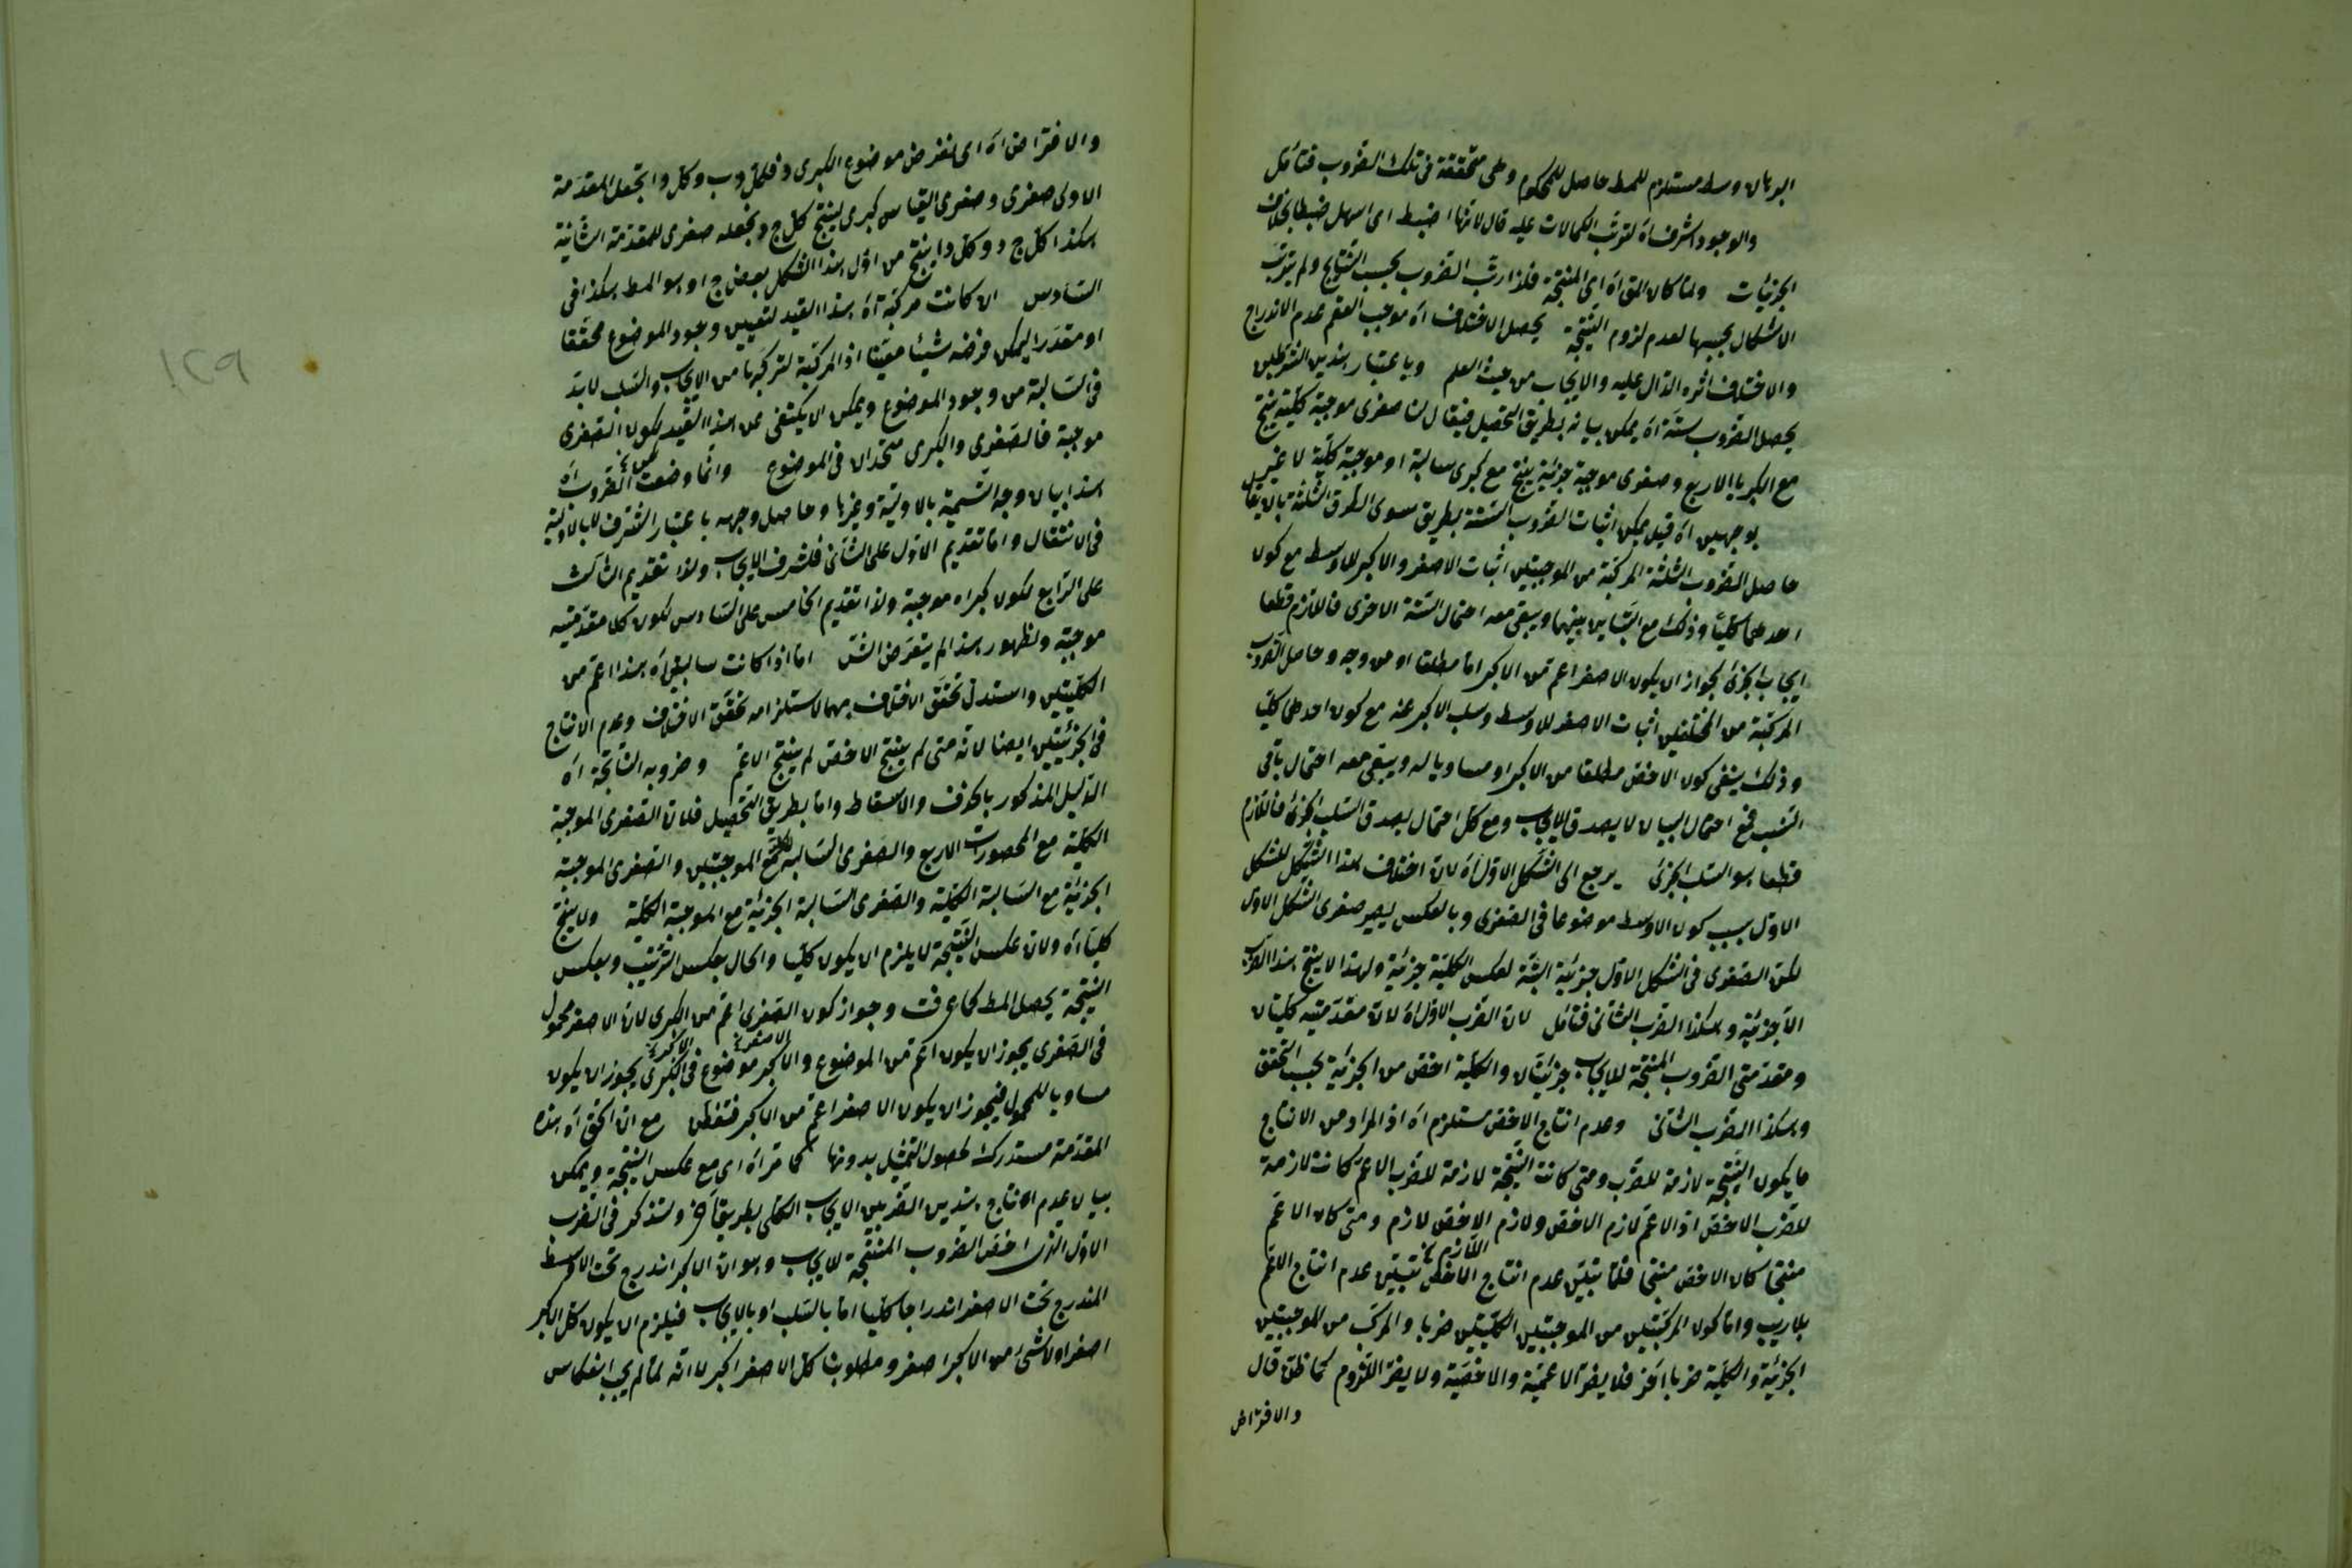 البرهان وسط مستلزم للمط حاصل للمحكوم وهى متحققة فى تلك الضروب فتأمل
والوجود اشرف اه لترتب الكمالات عليه قال لانها اضبط اى اسهل ضبطا بخلاف
الجزئيات ولما كان المق اه اى المنتجة فلذا رتب الضروب بحسب النتايج ولم يترتب
الاشكال بحسبها لعدم لزوم النتيجة يحصل الاختلاف اه موجب العقم عدم الاندراج
والاختلاف اثره الدال عليه والايجاب من حيث العلم وباعتبار هذين الشرطين
يحصل الضروب ستة اه يمكن بيانه بطريق التحصيل فيقال لنا صغرى موجبة كلية ينتج
مع الكبريات الاربع وصغرى موجبة جزئية ينتج مع كبرى سالبة او موجبة كلية لا غير
بوجهين اه قيل يمكن اثبات الضروب الستة بطريق سوى الطرق الثلثة بالايقال
حاصل الضروب الثلثة المركبة من الموجبتين اثبات الاصغر والاكبر للاوسط مع كون
احدهما كليا وذلك مع التباين بينهما ويبقى معه احتمال الستة الاخرى فاللازم قطعا
ايجاب الجزئ لجواز ان يكون الاصغر اعم من الاكبر اما مطلقا او من وجه وحاصل الضروب
المركبة من المختلفين اثبات الاصغر للاوسط وسلب الاكبر عنه مع كون احدهما كليا
وذلك ينفى كون الاخص مطلقا من الاكبر او مساويا له ويبقى معه احتمال باقى
النسب فمع احتمال البيان لا يصدق الايجاب ومع كل احتمال يصدق السلب الجزئ فاللازم
قطعا هو السلب الجزئ يرجع الى الشكل الاول اه لان اختلاف هذا الشكل للشكل
الاول بسبب كون الاوسط موضوعا فى الصغرى وبالعكس يصير صغرى الشكل الاول
لكن الصغرى فى الشكل الاول جزئية البتة لعكس الكلية جزئية ولهذا لا ينتج هذا الضرب
الا جزئية وهكذا الضرب الثانى فتامل لان الضرب الاول اه لان مقدمتيه كليتان
ومقدمتى الضروب المنتجة للايجاب جزئيتان والكلية اخص من الجزئية بحسب التحقق
وهكذا الضرب الثانى وعدم انتاج الاخص مستلزم اه اذ المراد من الانتاج
ما يكون النتيجة لازمة للضرب ومتى كانت النتيجة لازمة للضرب الاعم كانت لازمة
للضرب الاخص اذ الاعم لازم الاخص ولازم الاخص لازم ومتى كان الاعم
منتجا كان الاخص منتجا فلما تبين عدم انتاج الاخص تبين عدم انتاج الاعم
اللازم
بلا ريب واما كون المركبتين من الموجبتين الكليتين ضربا والمركب من الموجبتين
الجزئية والكلية ضربا اخر فلا يضر الاعمية والاخصية ولا يضر اللزوم كما ظن قال
والافتراض
والافتراض اه اى لنفرض موضوع الكبرى د فلكل د ب وكل د ا بجعل المقدمة
الاولى صغرى وصغرى القياس كبرى لينتج كل ج د بجعله صغرى للمقدمة الثانية
هكذا كل ج د وكل د ا ينتج من اول هذا الشكل بعض ج ا وهو المط هكذا فى
السادس ان كانت مركبة اه هذا القيد لتعيين وجود الموضوع محققا
او مقدرا ليمكن فرضه شيئا معينا اذ المركبة لتركبها من الايجاب والسلب لا بد
فى السالبة من وجود الموضوع ويمكن ان يكتفى عن هذا القيد بكون الصغرى
موجبة فالصغرى والكبرى متحدان فى الموضوع وانما وضعت الضروب اه
هذا بيان وجه التسمية بالاولية وغيرها وحاصل وجهه باعتبار الشرف لا بالاولية
فى الانتقال واما تقديم الاول على الثانى فلشرف الايجاب ولذا تقديم الثالث
على الرابع لكون كبراه موجبة ولذا تقديم الخامس على السادس لكون كلا مقدمتيه
موجبة ولظهور هذا لم يتعرض الش اما اذا كانت سالبتين اه هذا اعم من
الكليتين واستدل تحقق الاختلاف بهما لاستلزامه تحقق الاختلاف وعدم الانتاج
فى الجزئيتين ايضا لانه متى لم ينتج الاخص لم ينتج الاعم وضروبه الناتجة اه
الدليل المذكور بالحذف والاسقاط واما بطريق التحصيل فلان الصغرى الموجبة
الكلية مع المحصورات الاربع والصغرى السالبة الكلية مع الموجبتين والصغرى الموجبة
الجزئية مع السالبة الكلية والصغرى السالبة الجزئية مع الموجبة الكلية ولا ينتج
كليا اه ولان عكس النتيجة لا يلزم ان يكون كليا والحال بعكس الترتيب وبعكس
النتيجة يحصل المط كما عرفت وجواز كون الصغرى اعم من الكبرى لان الاصغر محمول
فى الصغرى يجوز ان يكون اعم من الموضوع والاكبر موضوع فى الكبرى يجوز ان يكون
الاصغر الاكبر
مساويا للمحمول فيجوز ان يكون الاصغر اعم من الاكبر فتفطن مع ان الحق اه هذه
المقدمة مستدرك لحصول التمثيل بدونها كما مر اه اى مع عكس النتيجة ويمكن
بيان عدم انتاج هذين الضربين الايجاب الكلى بطريق اخر ولنذكر فى الضرب
الاول الذى اخص الضروب المنتجة للايجاب وهو ان الاكبر اندرج تحت الاوسط
المندرج تحت الاصغر اندراجا كليا اما بالسلب او بالايجاب فيلزم ان يكون كل اكبر
اصغر او لا شئ من الاكبر اصغر ومطلوبنا كل الاصغر اكبر لا انه لما لم يجب انعكاس
١٢٩